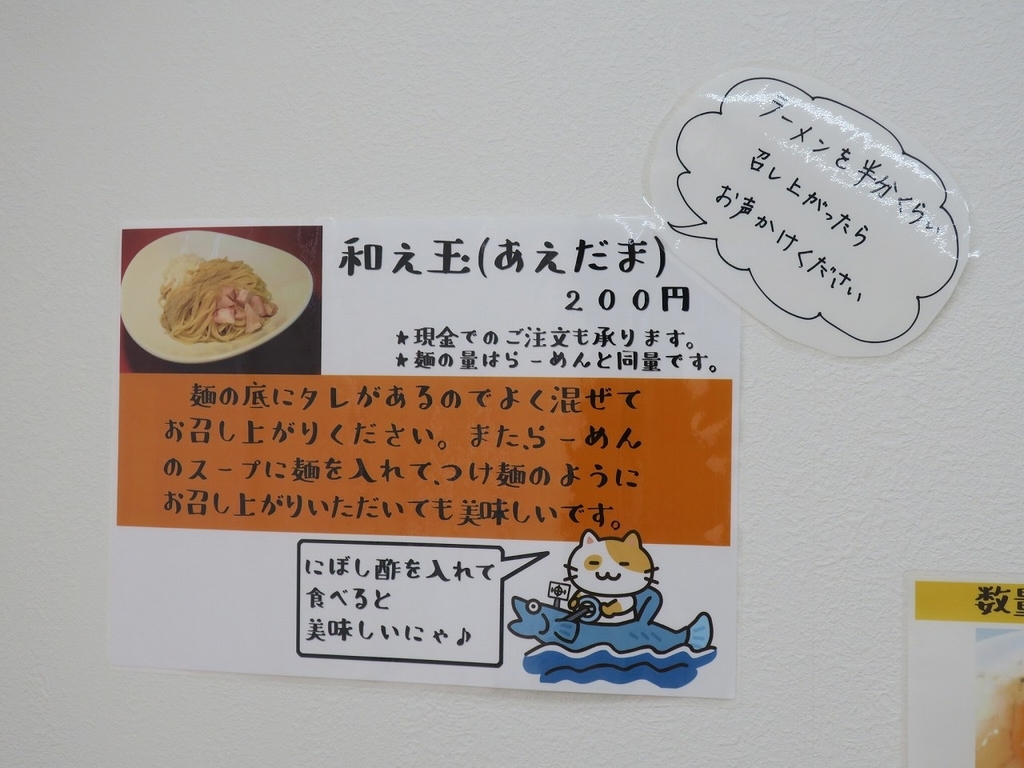 ラーメンを半分くらい
召し上がったら
お声かけください
和え玉(あえだま)
200円
★現金でのご注文も承ります。
★麺の量はらーめんと同量です。
麺の底にタレがあるのでよく混ぜて
お召し上がりください。また、らーめん
のスープに麺を入れて、つけ麺のように
お召し上がりいただいても美味しいです。
にぼし酢を入れて
食べると
美味しいにゃ♪
数